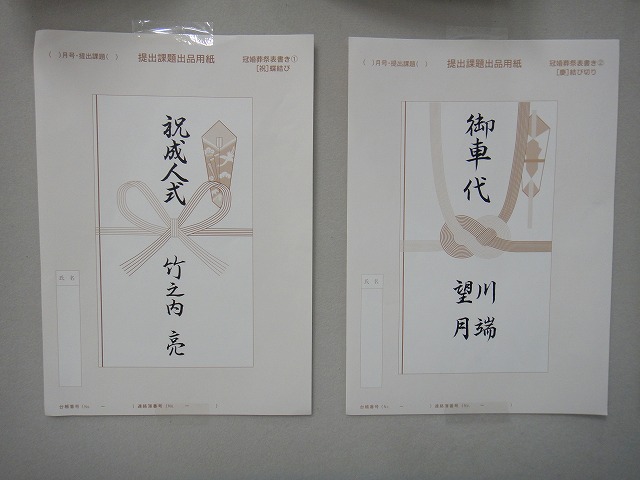 ( )月号・提出課題( )
提出課題出品用紙
冠婚葬祭表書き①
[祝]蝶結び
祝成人式
竹之内 亮
氏名
分類番号 (No. - ) 連絡簿番号 (No. - )
( )月号・提出課題( )
提出課題出品用紙
冠婚葬祭表書き②
[慶]結び切り
御車代
川端
望月
氏名
分類番号 (No. - ) 連絡簿番号 (No. - )